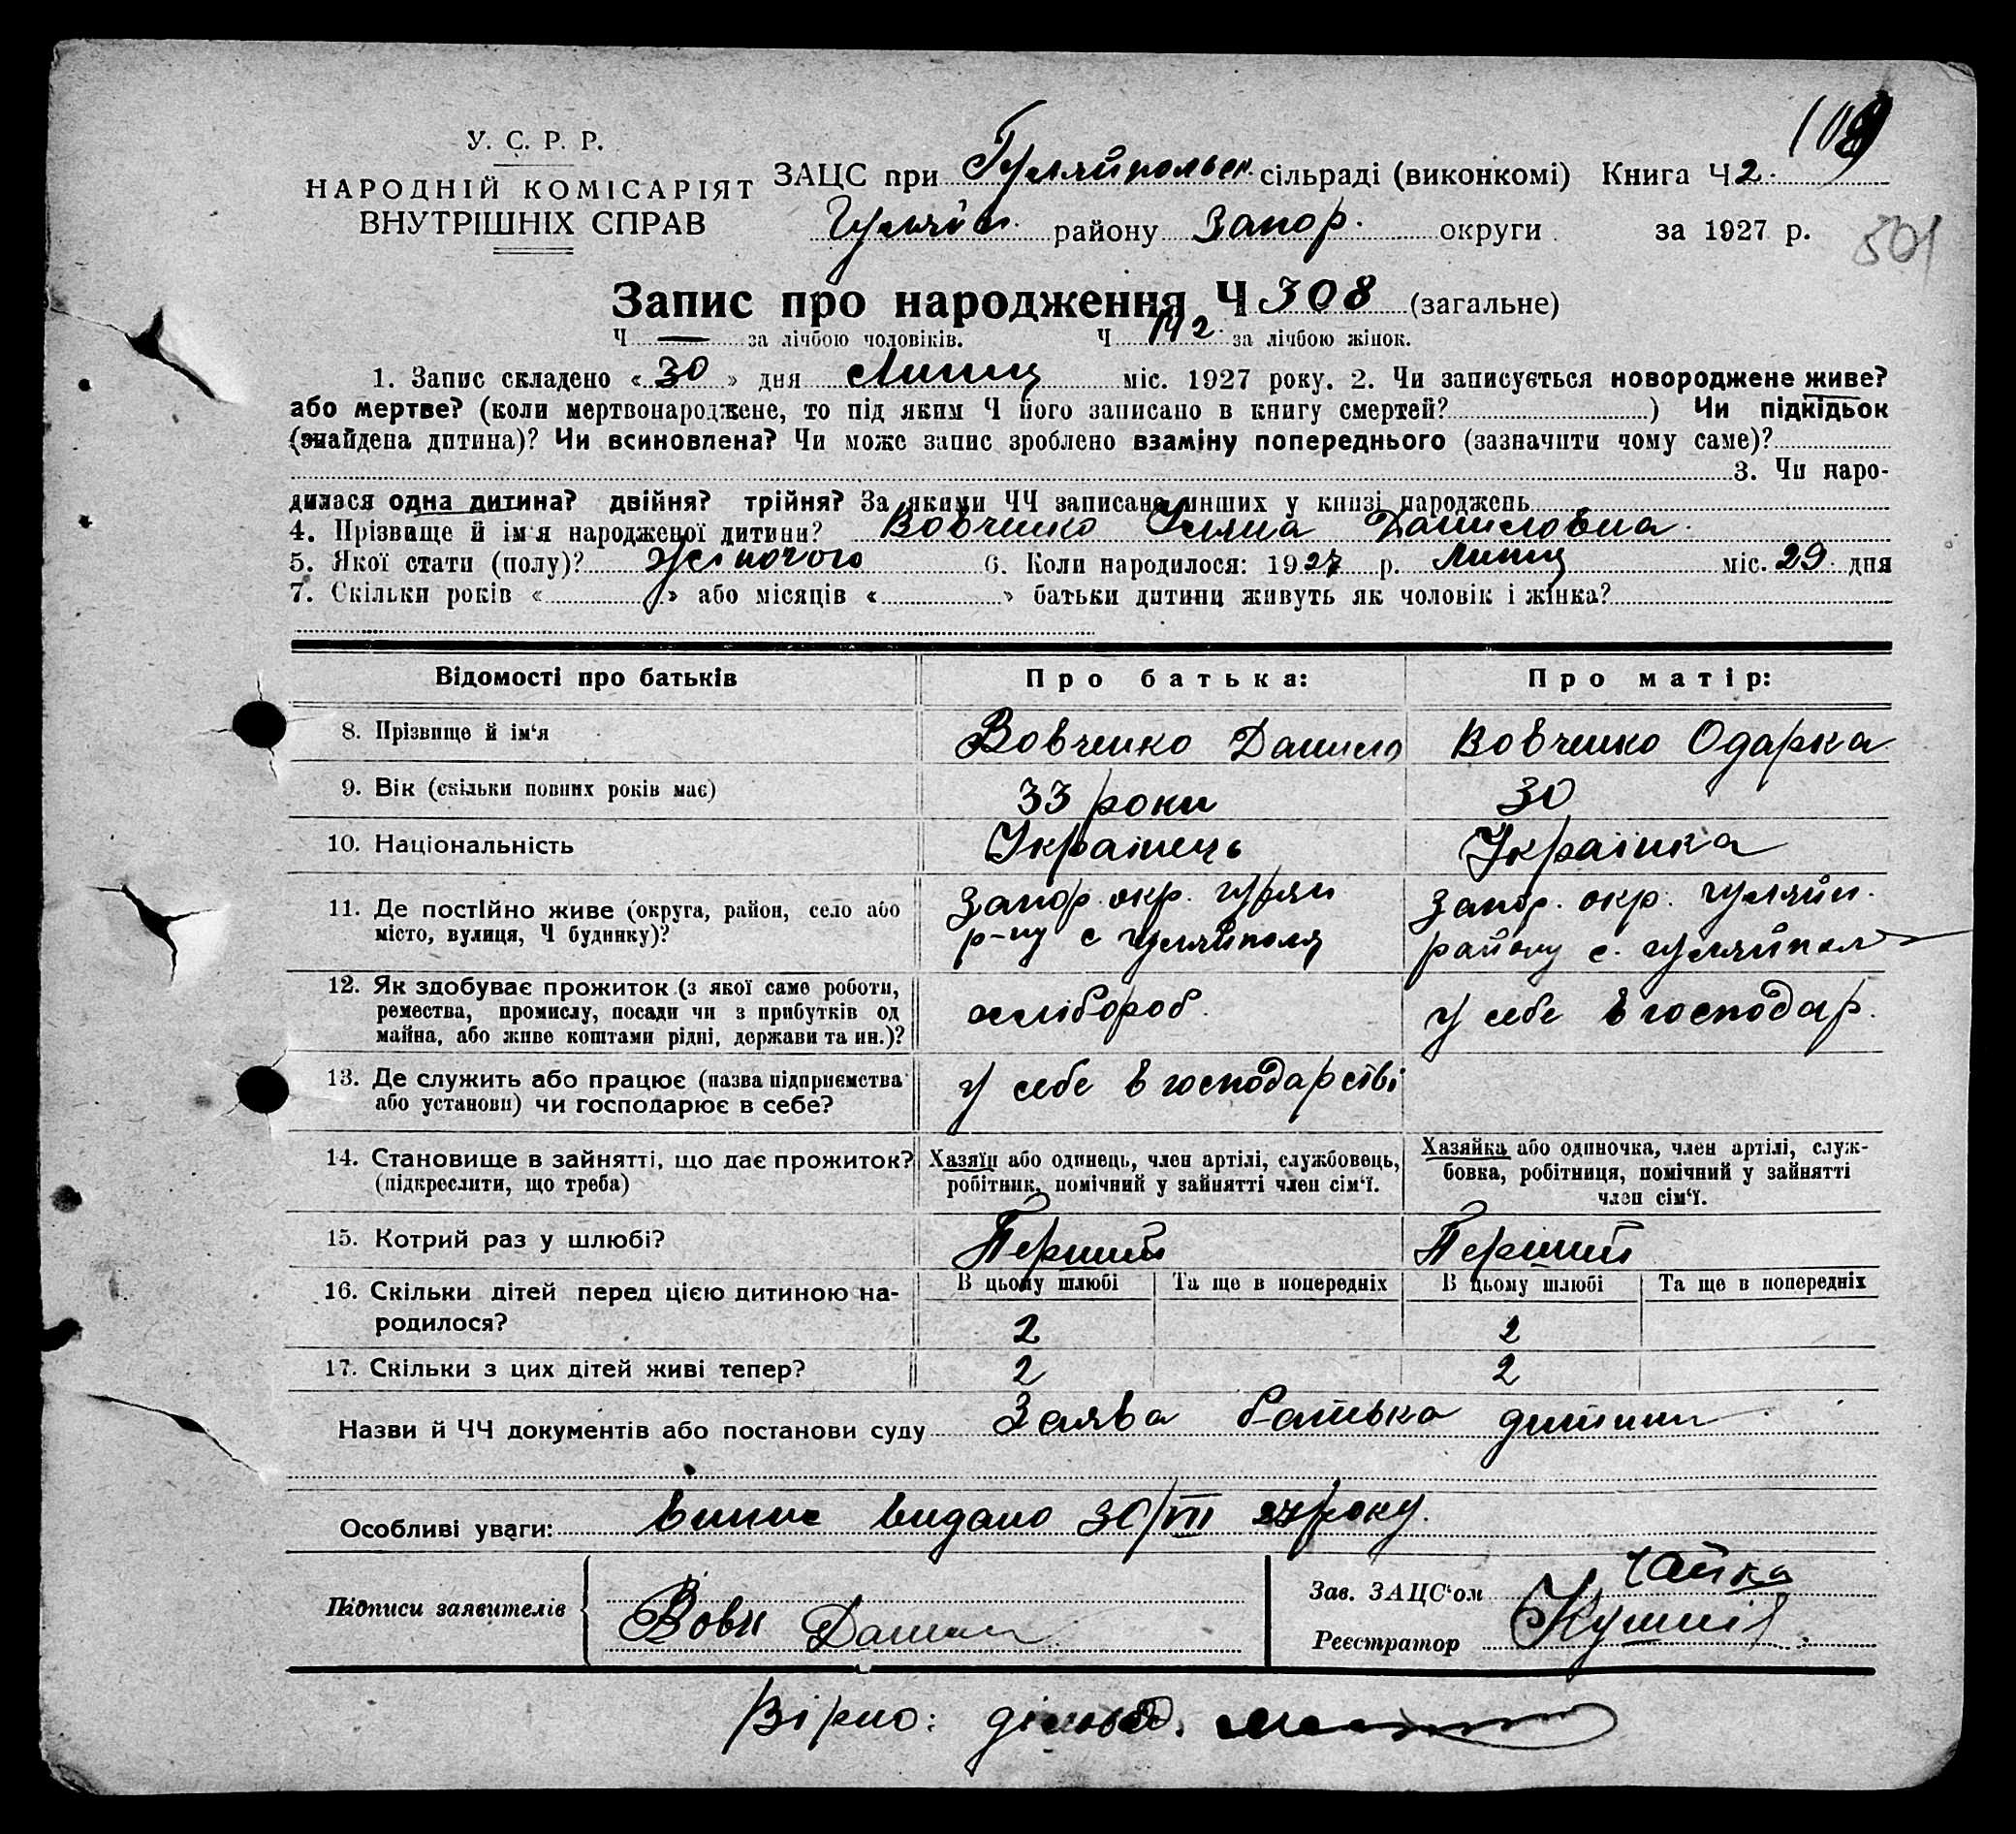 109
У. С. Р. Р.
НАРОДНІЙ КОМІСАРІЯТ
ВНУТРІШНІХ СПРАВ
ЗАЦС при Гуляйпольськ. сільраді (виконкомі) Книга Ч 2.
Гуляйп. району Запор. округи за 1927 р.
501
Запис про народження Ч 308 (загальне)
Ч — за лічбою чоловіків. Ч 142 за лічбою жінок.
1. Запис складено «30» дня Липця міс. 1927 року. 2. Чи записується новороджене живе?
або мертве? (коли мертвонароджене, то під яким Ч його записано в книгу смертей?) Чи підкідьок
(знайдена дитина)? Чи всиновлена? Чи може запис зроблено взаміну попереднього (зазначити чому саме)?
3. Чи наро-
дилася одна дитина? двійня? трійня? За якими ЧЧ записано инших у книзі народжень
4. Прізвище й ім'я народженої дитини? Вовченко Уляна Даниловна.
5. Якої стати (полу)? Жіночого 6. Коли народилося: 1927 р. Липця міс. 29 дня
7. Скільки років « » або місяців « » батьки дитини живуть як чоловік і жінка?
Відомості про батьків Про батька: Про матір:
8. Прізвище й ім'я Вовченко Данило Вовченко Одарка
9. Вік (скільки повних років має) 33 роки 30
10. Національність Українець Українка
11. Де постійно живе (округа, район, село або Запор. окр. Гуляй Запор. окр. Гуляйп.
місто, вулиця, Ч будинку)? р-ну с Гуляйполя району с. Гуляйпол
12. Як здобуває прожиток (з якої саме роботи,
ремества, промислу, посади чи з прибутків од хлібороб. у себе в господар.
майна, або живе коштами рідні, держави та ин.)?
13. Де служить або працює (назва підприємства у себе в господарстві
або установи) чи господарює в себе?
14. Становище в зайнятті, що дає прожиток? Хазяїн або одинець, член артілі, службовець, Хазяйка або одиночка, член артілі, служ-
(підкреслити, що треба) робітник, помічний у зайнятті член сім'ї. бовка, робітниця, помічний у зайнятті
член сім'ї.
15. Котрий раз у шлюбі? Перший Перший
16. Скільки дітей перед цією дитиною на- В цьому шлюбі Та ще в попередніх В цьому шлюбі Та ще в попередніх
родилося? 2 2
17. Скільки з цих дітей живі тепер? 2 2
Назви й ЧЧ документів або постанови суду Заява батька дитини
Особливі уваги: випис видано 30/VII 27 року.
Підписи заявителів Вовч Данил
Зав. ЗАЦС'ом Чайка
Реєстратор Кушнір
Вірно: діловод.